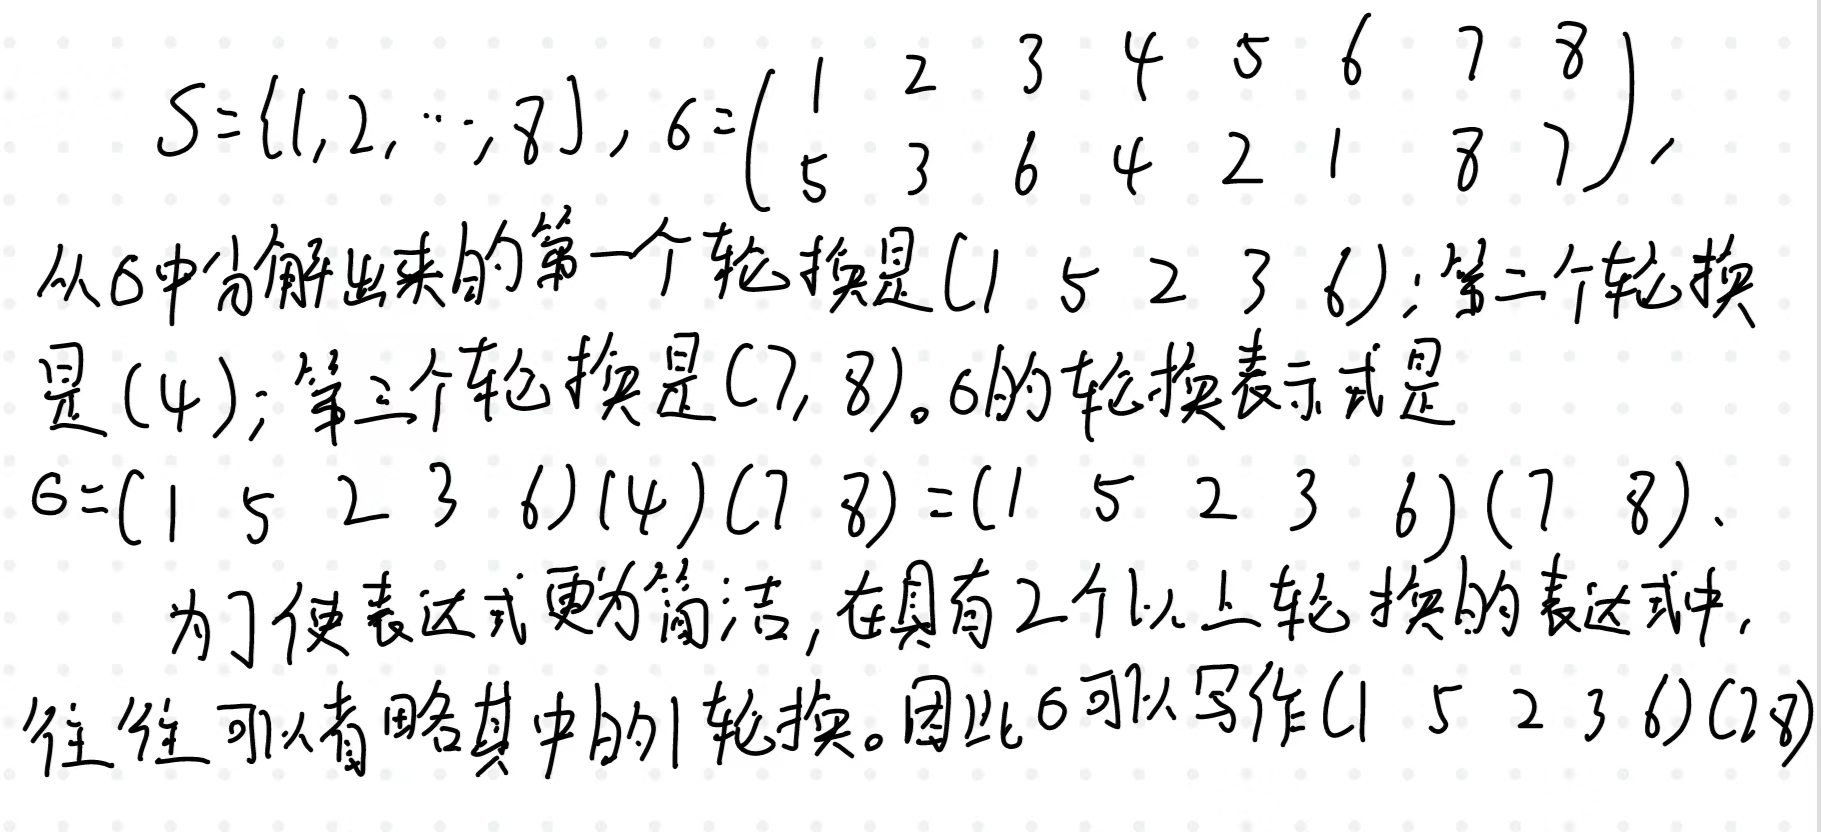 S={1,2,⋯,8}, σ=(1 2 3 4 5 6 7 8
5 3 6 4 2 1 8 7),
从σ中分解出来的第一个轮换是(1 5 2 3 6);第二个轮换
是(4);第三个轮换是(7,8)。σ的轮换表示式是
σ=(1 5 2 3 6)(4)(7 8)=(1 5 2 3 6)(7 8).
为了使表达式更为简洁,在具有2个以上轮换的表达式中,
往往可以省略其中的1轮换。因此σ可以写作(1 5 2 3 6)(78)